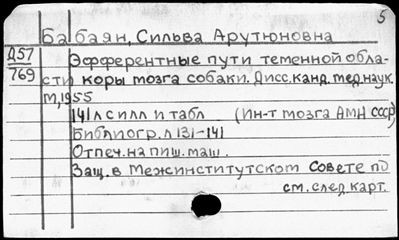 5
Бабаян, Сильва Арутюновна
Д57
769
Эфферентные пути теменной обла-
сти коры мозга собаки. Дисс. канд. мед. наук.
М, 1955
141 л с илл и табл (Ин-т мозга АМН СССР)
Библиогр. л 131-141
Отпеч. на пиш. маш.
Защ. в Межинститутском Совете по
см. след. карт.